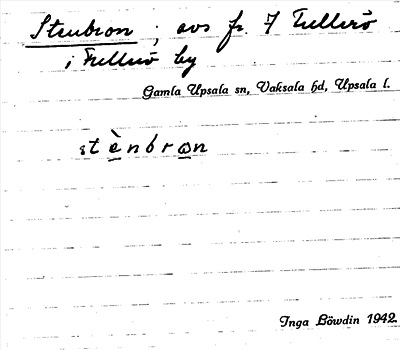 Stenbron ; avs fr. 7 Fullerö
i Fullerö by
Gamla Upsala sn, Vaksala hd, Upsala l.
stènbron
Inga Löwdin 1942.